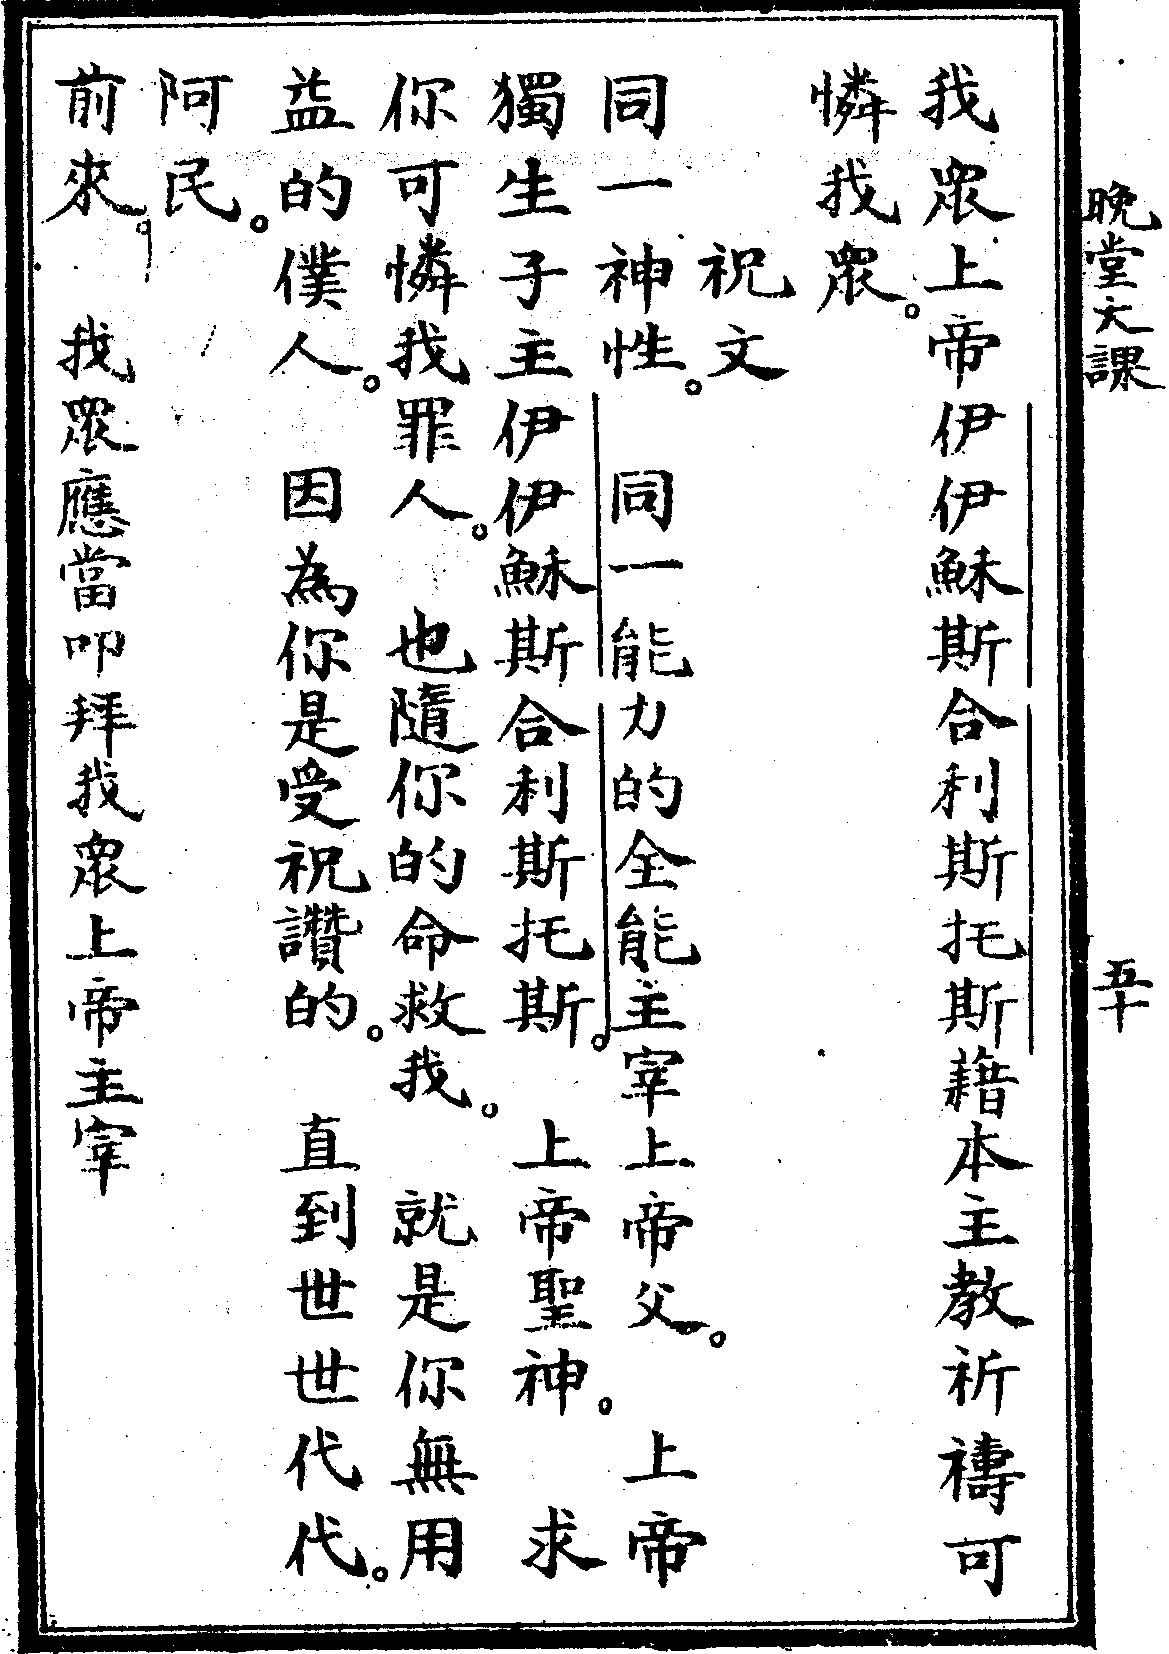 晚堂大課
五十
我眾上帝伊伊穌斯合利斯托斯藉本主教祈禱可
憐我眾。
祝文
同一神性。 同一能力的全能主宰上帝父。 上帝
獨生子主伊伊穌斯合利斯托斯。 上帝聖神。 求
你可憐我罪人。 也隨你的命救我。 就是你無用
益的僕人。 因為你是受祝讚的。 直到世世代代。
阿民。
前來。 我眾應當叩拜我眾上帝主宰